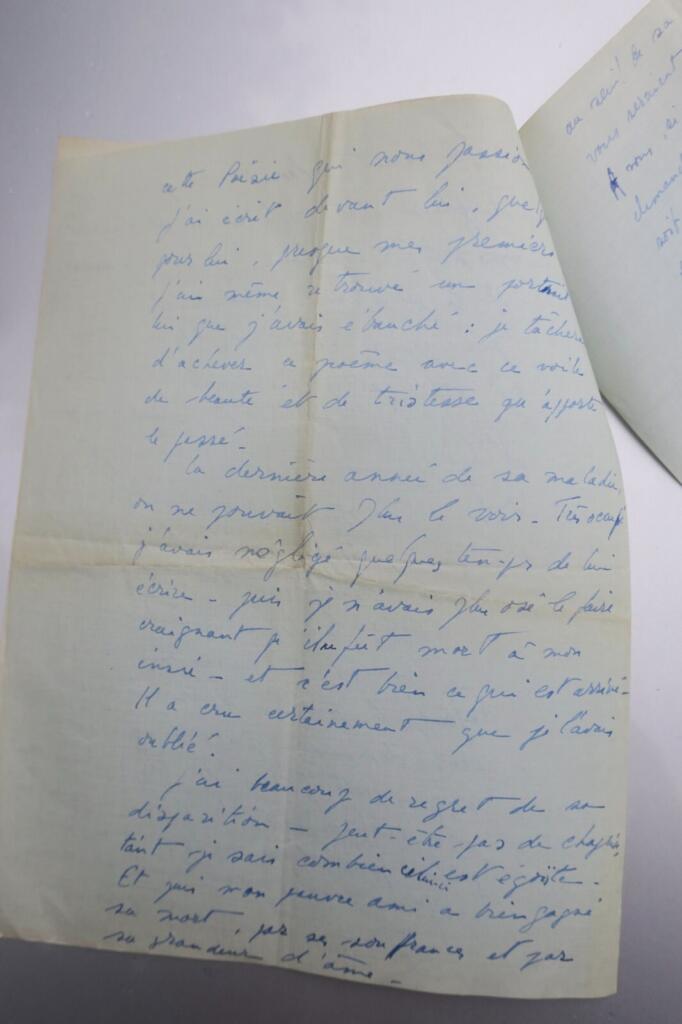 cette Poésie qui nous passion
j'ai écrit devant lui, quelq
pour lui, presque mes premiers
j'ai même retrouvé un portrait
lui que j'avais ébauché : je tâcherai
d'achever ce poème avec ce voile
de beauté et de tristesse qu'apporte
le passé.
La dernière année de sa maladie,
on ne pouvait plus le voir. Très occupé
j'avais négligé quelques temps de lui
écrire - puis je n'avais plus osé le faire
craignant qu'il ne fût mort à mon
insu - et c'est bien ce qui est arrivé -
Il a cru certainement que je l'avais
oublié.
J'ai beaucoup de regret de sa
disparition - peut-être pas de chagrin,
tant je sais combien celui-ci est égoïste -
Et puis mon pauvre ami a bien gagné
sa mort par ses souffrances et par
sa grandeur d'âme -
de sa
vous seraient
A vous, si
demand
soit